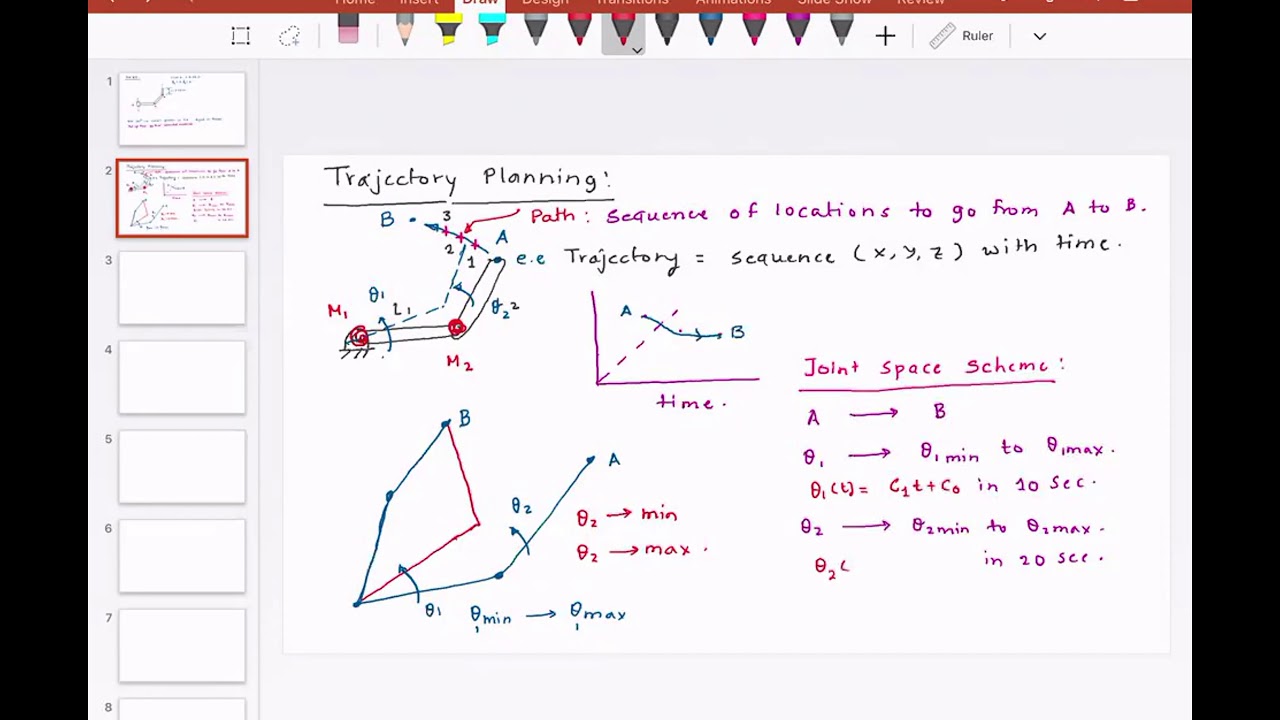 Home Insert Draw Design Transitions Animations Slide Show Review
Ruler
1
2
3
4
5
6
7
8
Trajectory Planning:
B 3
Path: Sequence of locations to go from A to B.
A
2 1
e.e Trajectory = sequence (x, y, z) with time.
θ1
M1 L1 θ2 2
M2
A B
time.
Joint Space Scheme:
A → B
θ1 → θ1min to θ1max.
θ1(t) = C1t + C0 in 10 sec.
θ2 → θ2min to θ2max.
θ2( in 20 sec.
B
A
θ2
θ2 → min
θ2 → max.
θ1
θ1min → θ1max